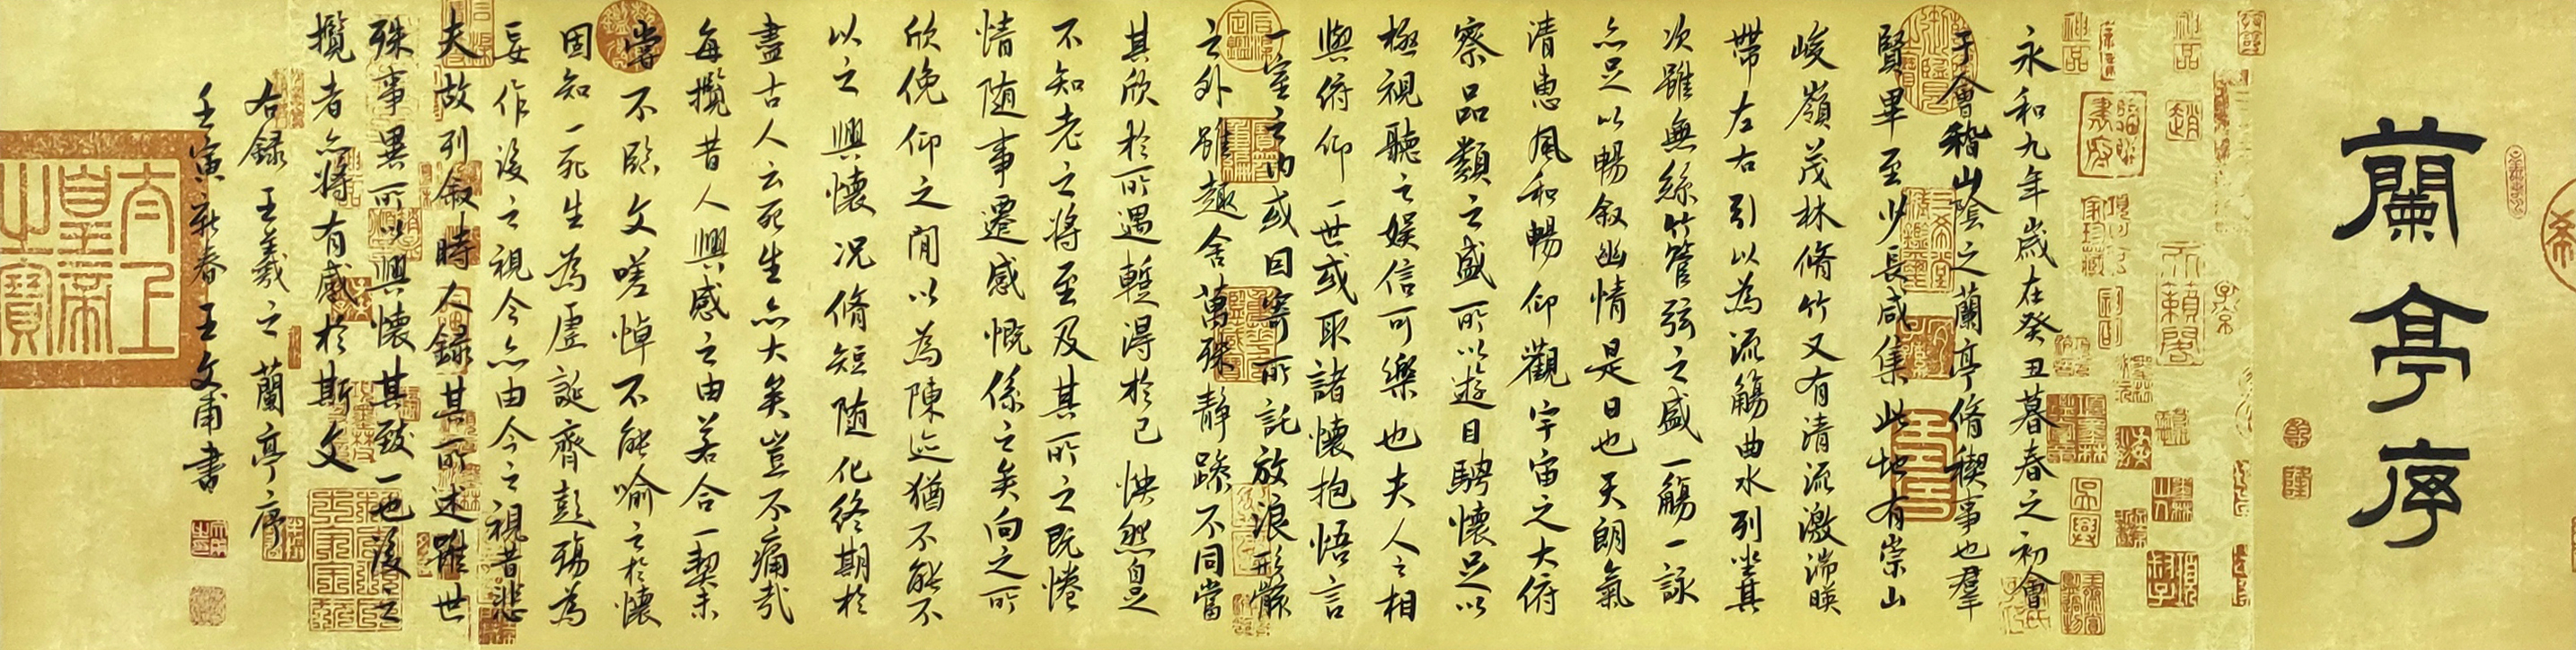 蘭亭序
永和九年歲在癸丑暮春之初會
于會稽山陰之蘭亭脩禊事也羣
賢畢至少長咸集此地有崇山
峻嶺茂林脩竹又有清流激湍暎
帶左右引以為流觴曲水列坐其
次雖無絲竹管弦之盛一觴一詠
亦足以暢叙幽情是日也天朗氣
清惠風和暢仰觀宇宙之大俯
察品類之盛所以遊目騁懷足以
極視聽之娛信可樂也夫人之相
與俯仰一世或取諸懷抱悟言
一室之內或因寄所託放浪形骸
之外雖趣舍萬殊静躁不同當
其欣於所遇蹔得於己怏然自足
不知老之將至及其所之既惓
情隨事遷感慨係之矣向之所
欣俛仰之閒以為陳迹猶不能不
以之興懷況脩短隨化終期於
盡古人云死生亦大矣豈不痛哉
每攬昔人興感之由若合一契未
嘗不臨文嗟悼不能喻之於懷
固知一死生為虛誕齊彭殤為
妄作後之視今亦由今之視昔悲
夫故列叙時人録其所述雖世
殊事異所以興懷其致一也後之
攬者亦將有感於斯文
右録王羲之蘭亭序
壬寅新春王文甫書
太上
皇帝
之寶